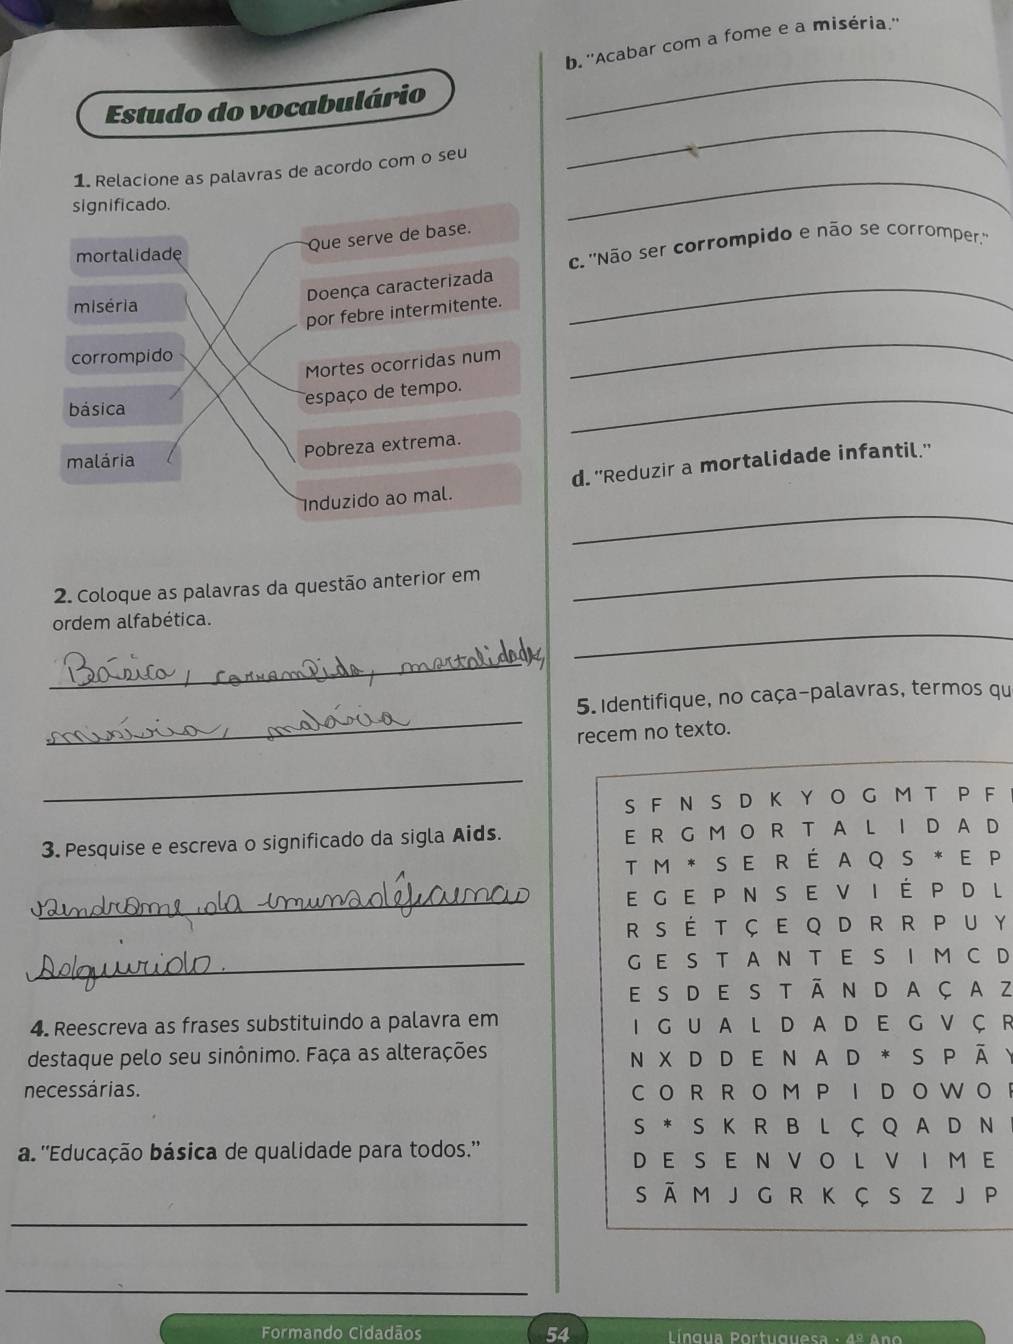 Estudo do vocabulário
1. Relacione as palavras de acordo com o seu
significado.
mortalidade
miséria
corrompido
básica
malária
Que serve de base.
Doença caracterizada
por febre intermitente.
Mortes ocorridas num
espaço de tempo.
Pobreza extrema.
Induzido ao mal.
2. Coloque as palavras da questão anterior em
ordem alfabética.
Básica, corrompido, mortalidade,
miséria, malária
3. Pesquise e escreva o significado da sigla Aids.
da
4. Reescreva as frases substituindo a palavra em
destaque pelo seu sinônimo. Faça as alterações
necessárias.
a. "Educação básica de qualidade para todos."
b. "Acabar com a fome e a miséria."
c. "Não ser corrompido e não se corromper."
d. "Reduzir a mortalidade infantil."
5. Identifique, no caça-palavras, termos qu
recem no texto.
S F N S D K Y O G M T P F
E R G M O R T A L I D A D
T M * S E R É A Q S * E P
E G E P N S E V I É P D L
R S É T Ç E Q D R R P U Y
G E S T A N T E S I M C D
E S D E S T Ã N D A Ç A Z
I G U A L D A D E G V Ç R
N X D D E N A D * S P Ã Y
C O R R O M P I D O W O
S * S K R B L Ç Q A D N
D E S E N V O L V I M E
S Ã M J G R K Ç S Z J P
Formando Cidadãos
54
Língua Portuguesa · 4º Ano